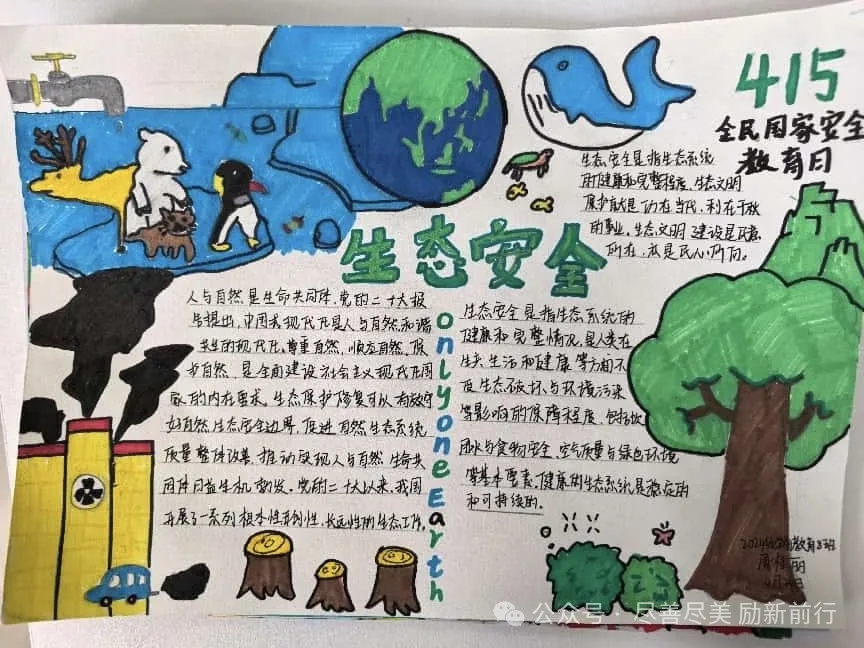 415
全民国家安全
教育日
生态安全是指生态系统
的健康和完整程度。生态文明
保护就是功在当代、利在千秋
的事业。生态文明建设是民意
所在,亦是民心所向。
生态安全
only one Earth
人与自然是生命共同体,党的二十大报
告提出,中国式现代化是人与自然和谐
共生的现代化,尊重自然,顺应自然,保
护自然,是全面建设社会主义现代化国
家的内在要求。生态保护修复可以有效守
好自然生态安全边界,促进自然生态系统
质量整体改善,推动实现人与自然生命共
同体日益生机勃发。党的二十大以来,我国
开展了一系列根本性开创性、长远性的生态工作。
生态安全是指生态系统的
健康和完整情况,是人类在
生关生活和健康等方面不
受生态破坏与环境污染
等影响的保障程度,包括饮
用水与食物安全、空气质量与绿色环境
等基本要素。健康的生态系统是稳定的
和可持续的。
2024级 教育8班
丽
4月 日
公众号·尽善尽美 励新前行